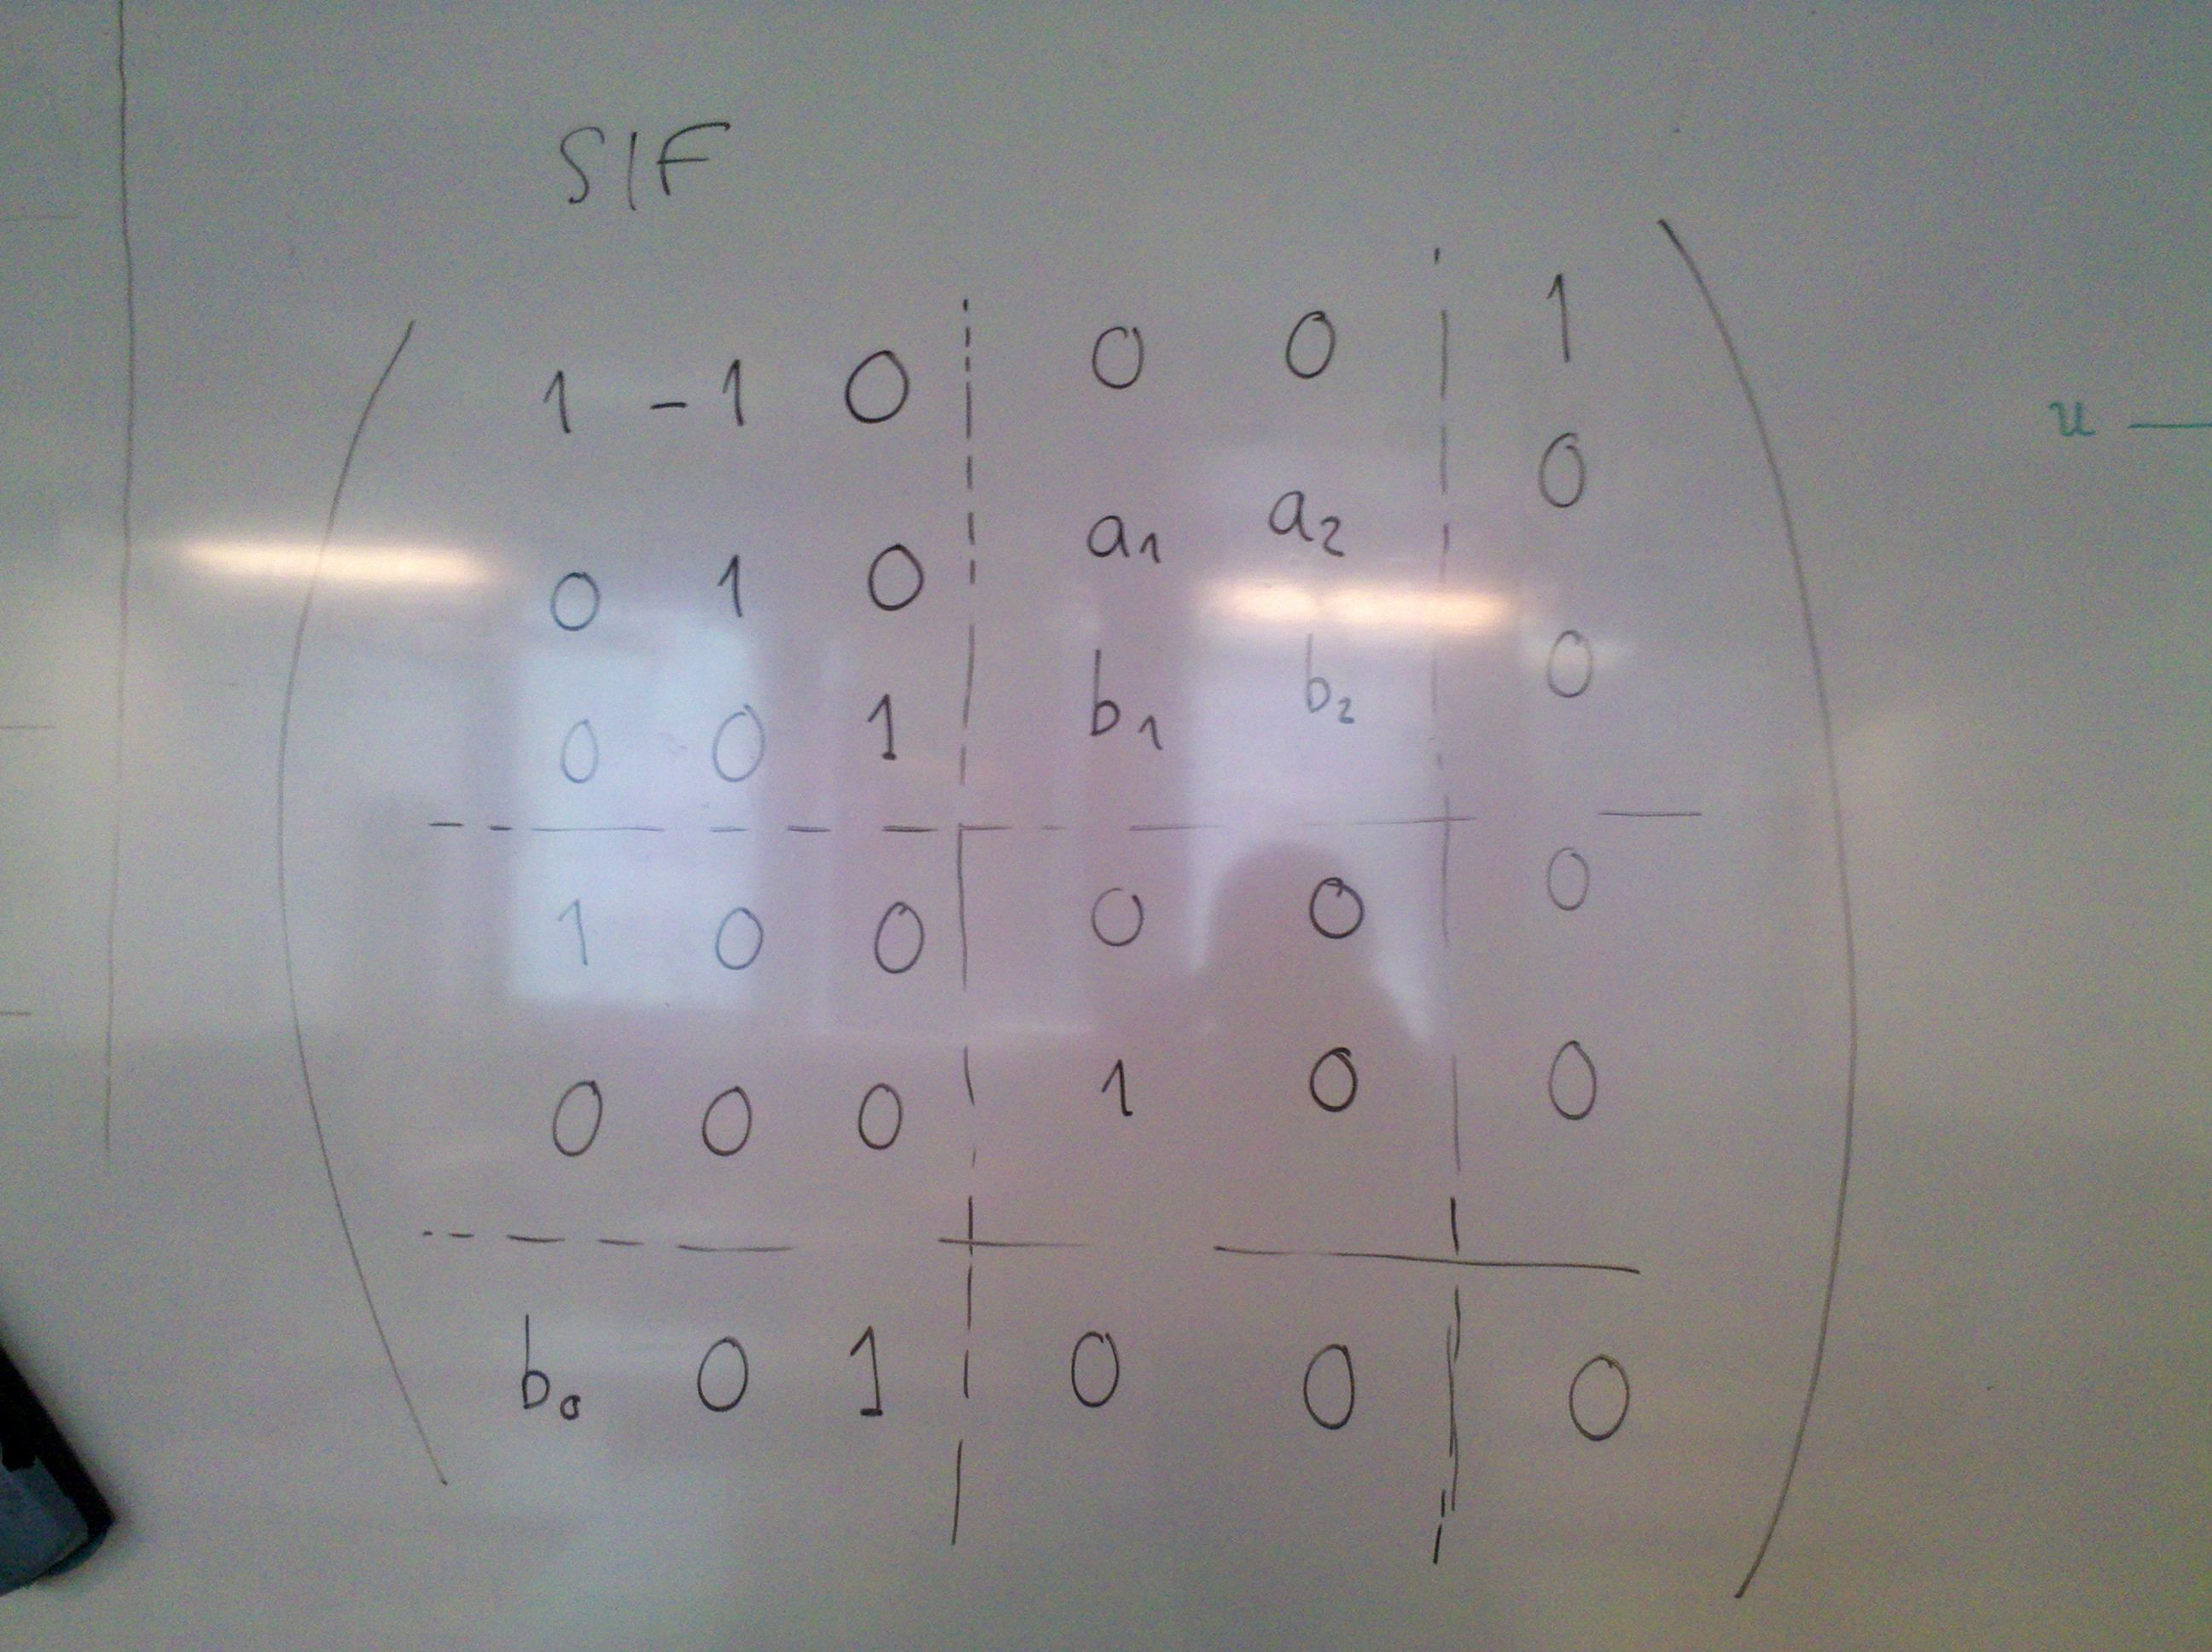 SIF
1 -1 0 0 0 1
u
0 1 0 a₁ a₂ 0
0 0 1 b₁ b₂ 0
1 0 0 0 0 0
0 0 0 1 0 0
b₀ 0 1 0 0 0